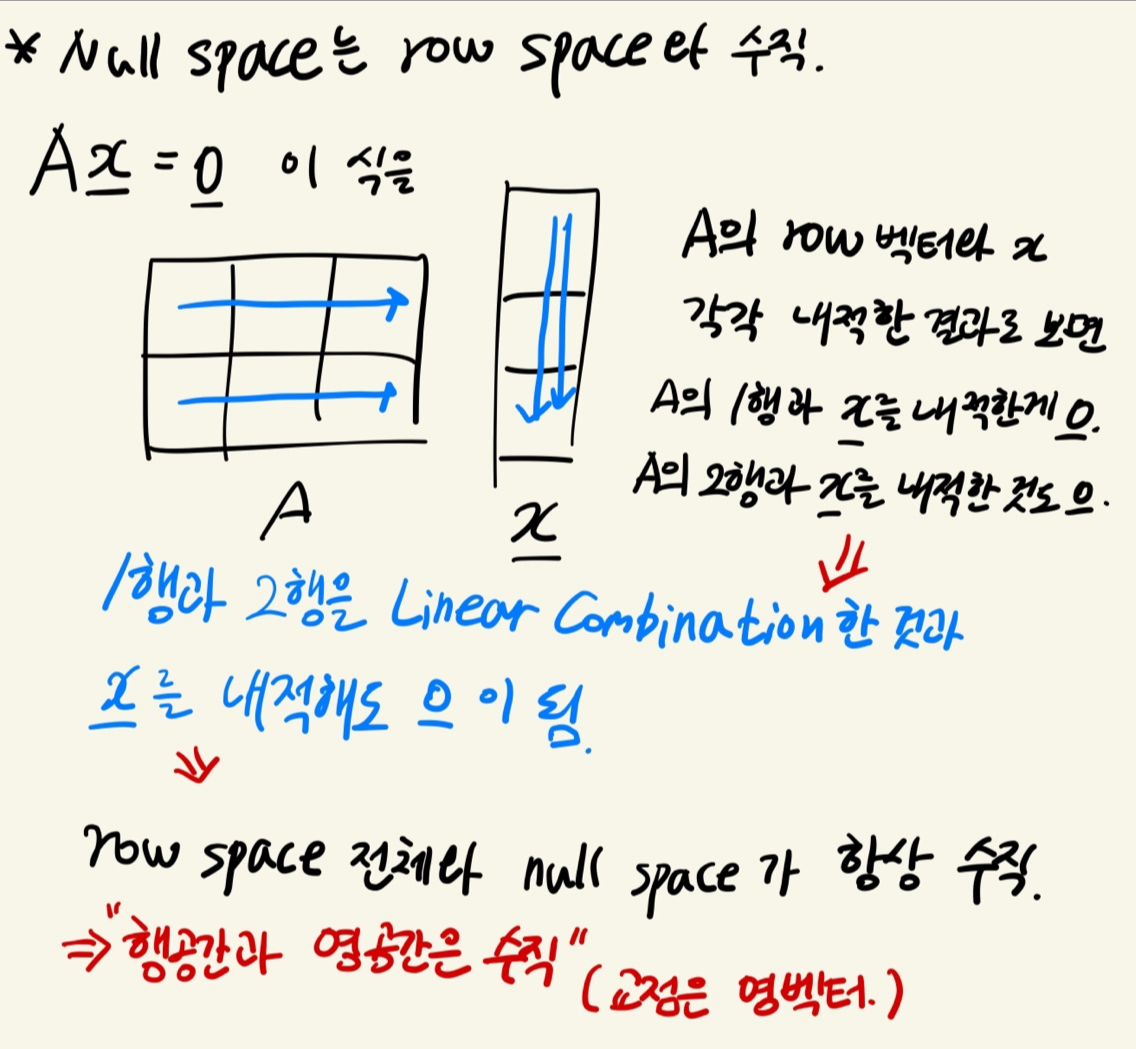 * Null space는 row space와 수직.
Ax = 0 이 식을
A의 row 벡터와 x
각각 내적한 결과로 보면
A의 1행과 x를 내적한게 0.
A의 2행과 x를 내적한 것도 0.
A
x
1행과 2행을 Linear Combination한 것과
x를 내적해도 0이 됨.
row space 전체와 null space가 항상 수직.
⇒ "행공간과 영공간은 수직"
(교점은 영벡터.)